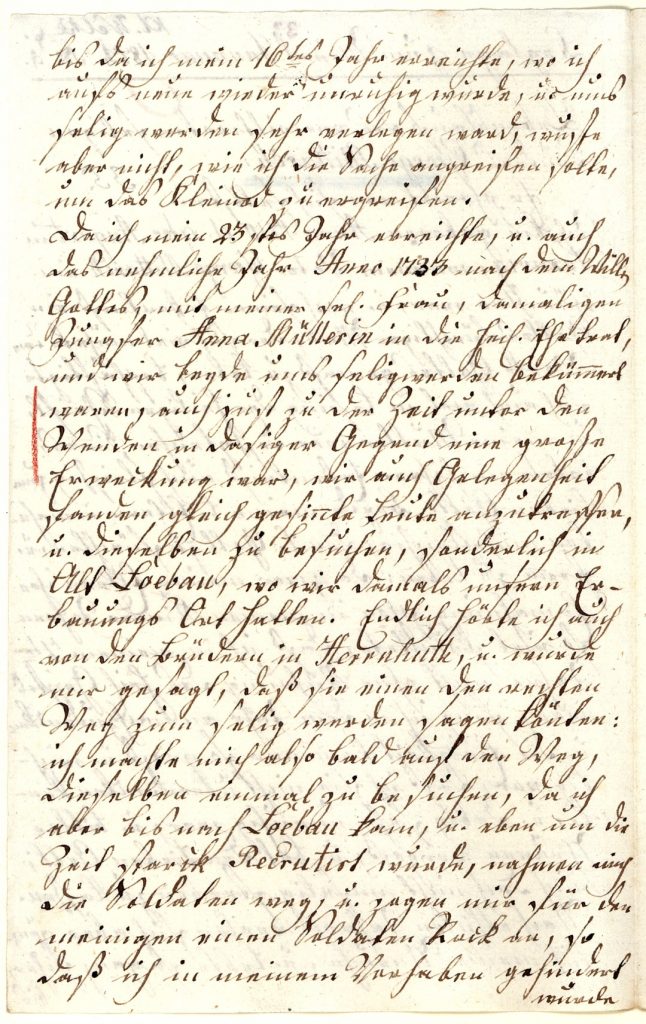 bis da ich mein 16tes Jahr erreichte, wo ich
aufs neue wieder unruhig wurde, u: ums
selig werden sehr verlegen ward, wuste
aber nicht, wie ich die Sache angreifen solte,
um das Kleinod zu ergreifen.
Da ich mein 23stes Jahr erreichte, u. auch
das nehmliche Jahr Anno 1733 nach dem Willn
Gottes, mit meiner sel. Frau, damaligen
Jungfer Anna Müllerin in die heil. Ehe trat,
und wir beyde ums seligwerden bekümmert
waren, auch just zu der Zeit unter den
Wenden in dasiger Gegend eine große
Erweckung war, wir auch Gelegenheit
fanden gleich gesinte Leute anzutreffen,
u. dieselben zu besuchen, sonderlich in
Alt Loebau, wo wir damals unsern Er-
bauungs Ort hatten. Endlich hörte ich auch
von den Brüdern in Herrnhuth, u. wurde
mir gesagt, daß sie einen den rechten
Weg zum selig werden sagen könten:
ich machte mich also bald auf den Weg,
dieselben einmal zu besuchen, da ich
aber bis nach Loebau kam, u. eben um die
Zeit starck Recrutirt wurde, nahmen mich
die Soldaten weg, u. zogen mir für den
meinigen einen Soldaten Rock an, so
daß ich in meinem Vorhaben gehindert
wurde